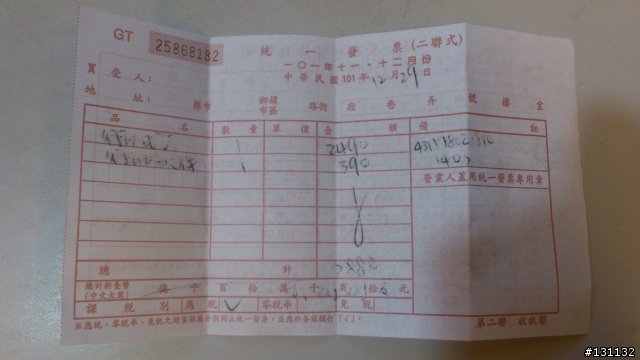 GT 25868182
統一發票(二聯式)
一〇一年十一、十二月份
中華民國101年12月29日
買受人:
地址: 縣市 鄉鎮市區 路街 段 巷 弄 號 樓 室
品名 數量 單價 金額 備註
1 2490
1 390
營業人蓋用統一發票專用章
總計
總計新臺幣(中文大寫) 億 千 百 拾 萬 千 百 拾 元
課稅別 應稅 V 零稅率 免稅
※應稅、零稅率、免稅之銷售額應分別開立統一發票,並應於各該欄打「V」。
第二聯 收執聯
#131132